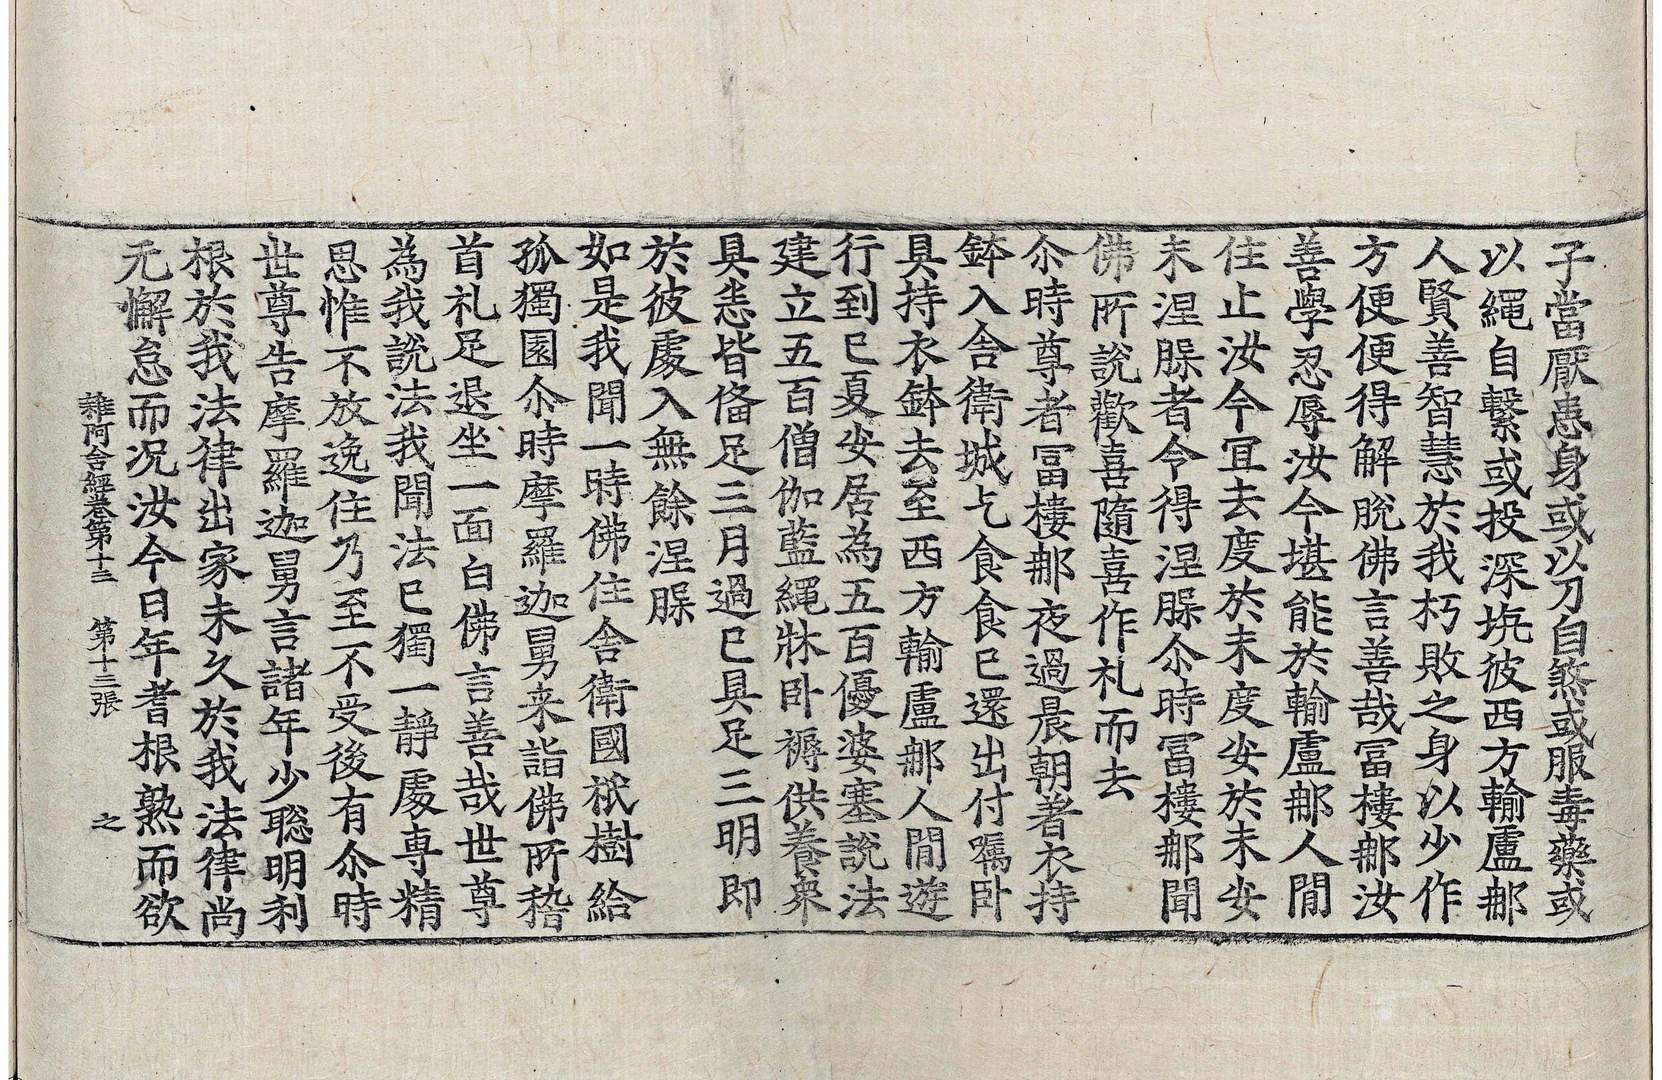 子當厭患身或以刀自煞或服毒藥或
以繩自繫或投深坑彼西方輸盧郍
人賢善智慧於我朽敗之身以少作
方便便得解脫佛言善哉冨樓郍汝
善學忍辱汝今堪能於輸盧郍人間
住止汝今冝去度於未度安於未安
未涅槃者令得涅槃尒時冨樓郍聞
佛所說歡喜隨喜作礼而去
尒時尊者冨樓郍夜過晨朝著衣持
鉢入舍衛城乞食食已還出付囑卧
具持衣鉢去至西方輸盧郍人間遊
行到已夏安居為五百優婆塞說法
建立五百僧伽藍繩牀卧褥供養衆
具悉皆俻足三月過已具足三明即
於彼處入無餘涅槃
如是我聞一時佛住舍衛國祇樹給
孤獨園尒時摩羅迦舅来詣佛所稽
首礼足退坐一面白佛言善哉世尊
為我說法我聞法已獨一靜處専精
思惟不放逸住乃至不受後有尒時
世尊告摩羅迦舅言諸年少聡明利
根於我法律出家未久於我法律尚
无懈怠而况汝今日年耆根熟而欲
雜阿含經卷第十三 第十三張 之